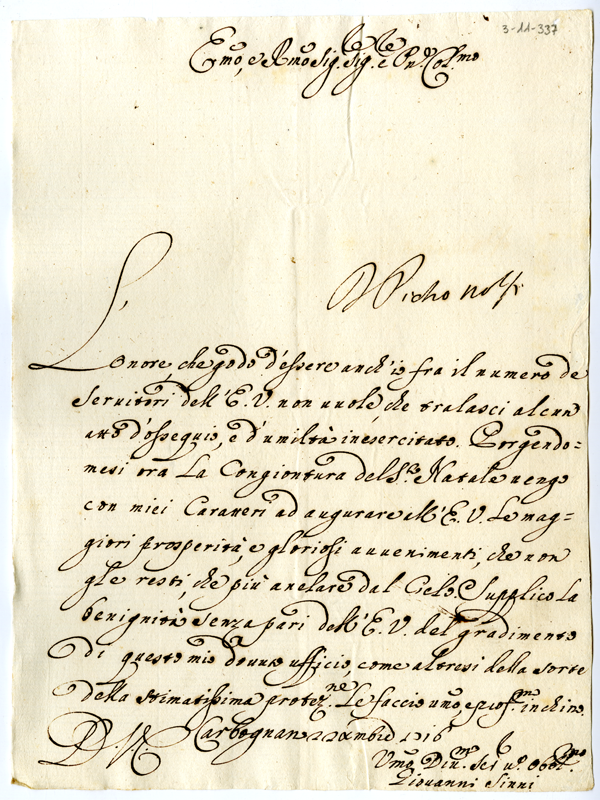 3-11-337
Emo, e Rmo Sig. Sig. e Pne Colmo
L'onore che godo d'essere anch'io fra il numero de
Servitori dell'E.V. non vuole, che tralasci alcun
atto d'ossequio, e d'umiltà inesercitato. Porgendo=
mesi ora La Congiontura del S. Natale vengo
con miei Caratteri ad augurare all'E.V. Le mag=
giori prosperità, e gloriosi avvenimenti, che non
gle resti, che più anelare dal Cielo. Supplico La
benignità senza pari dell'E.V. del gradimento
di questo mio dovuto ufficio, come altresi della sorte
della stimatissima protezne. Le faccio umo, e profmo inchino.
D.V.E. Carbognan
Giovanni Sinni